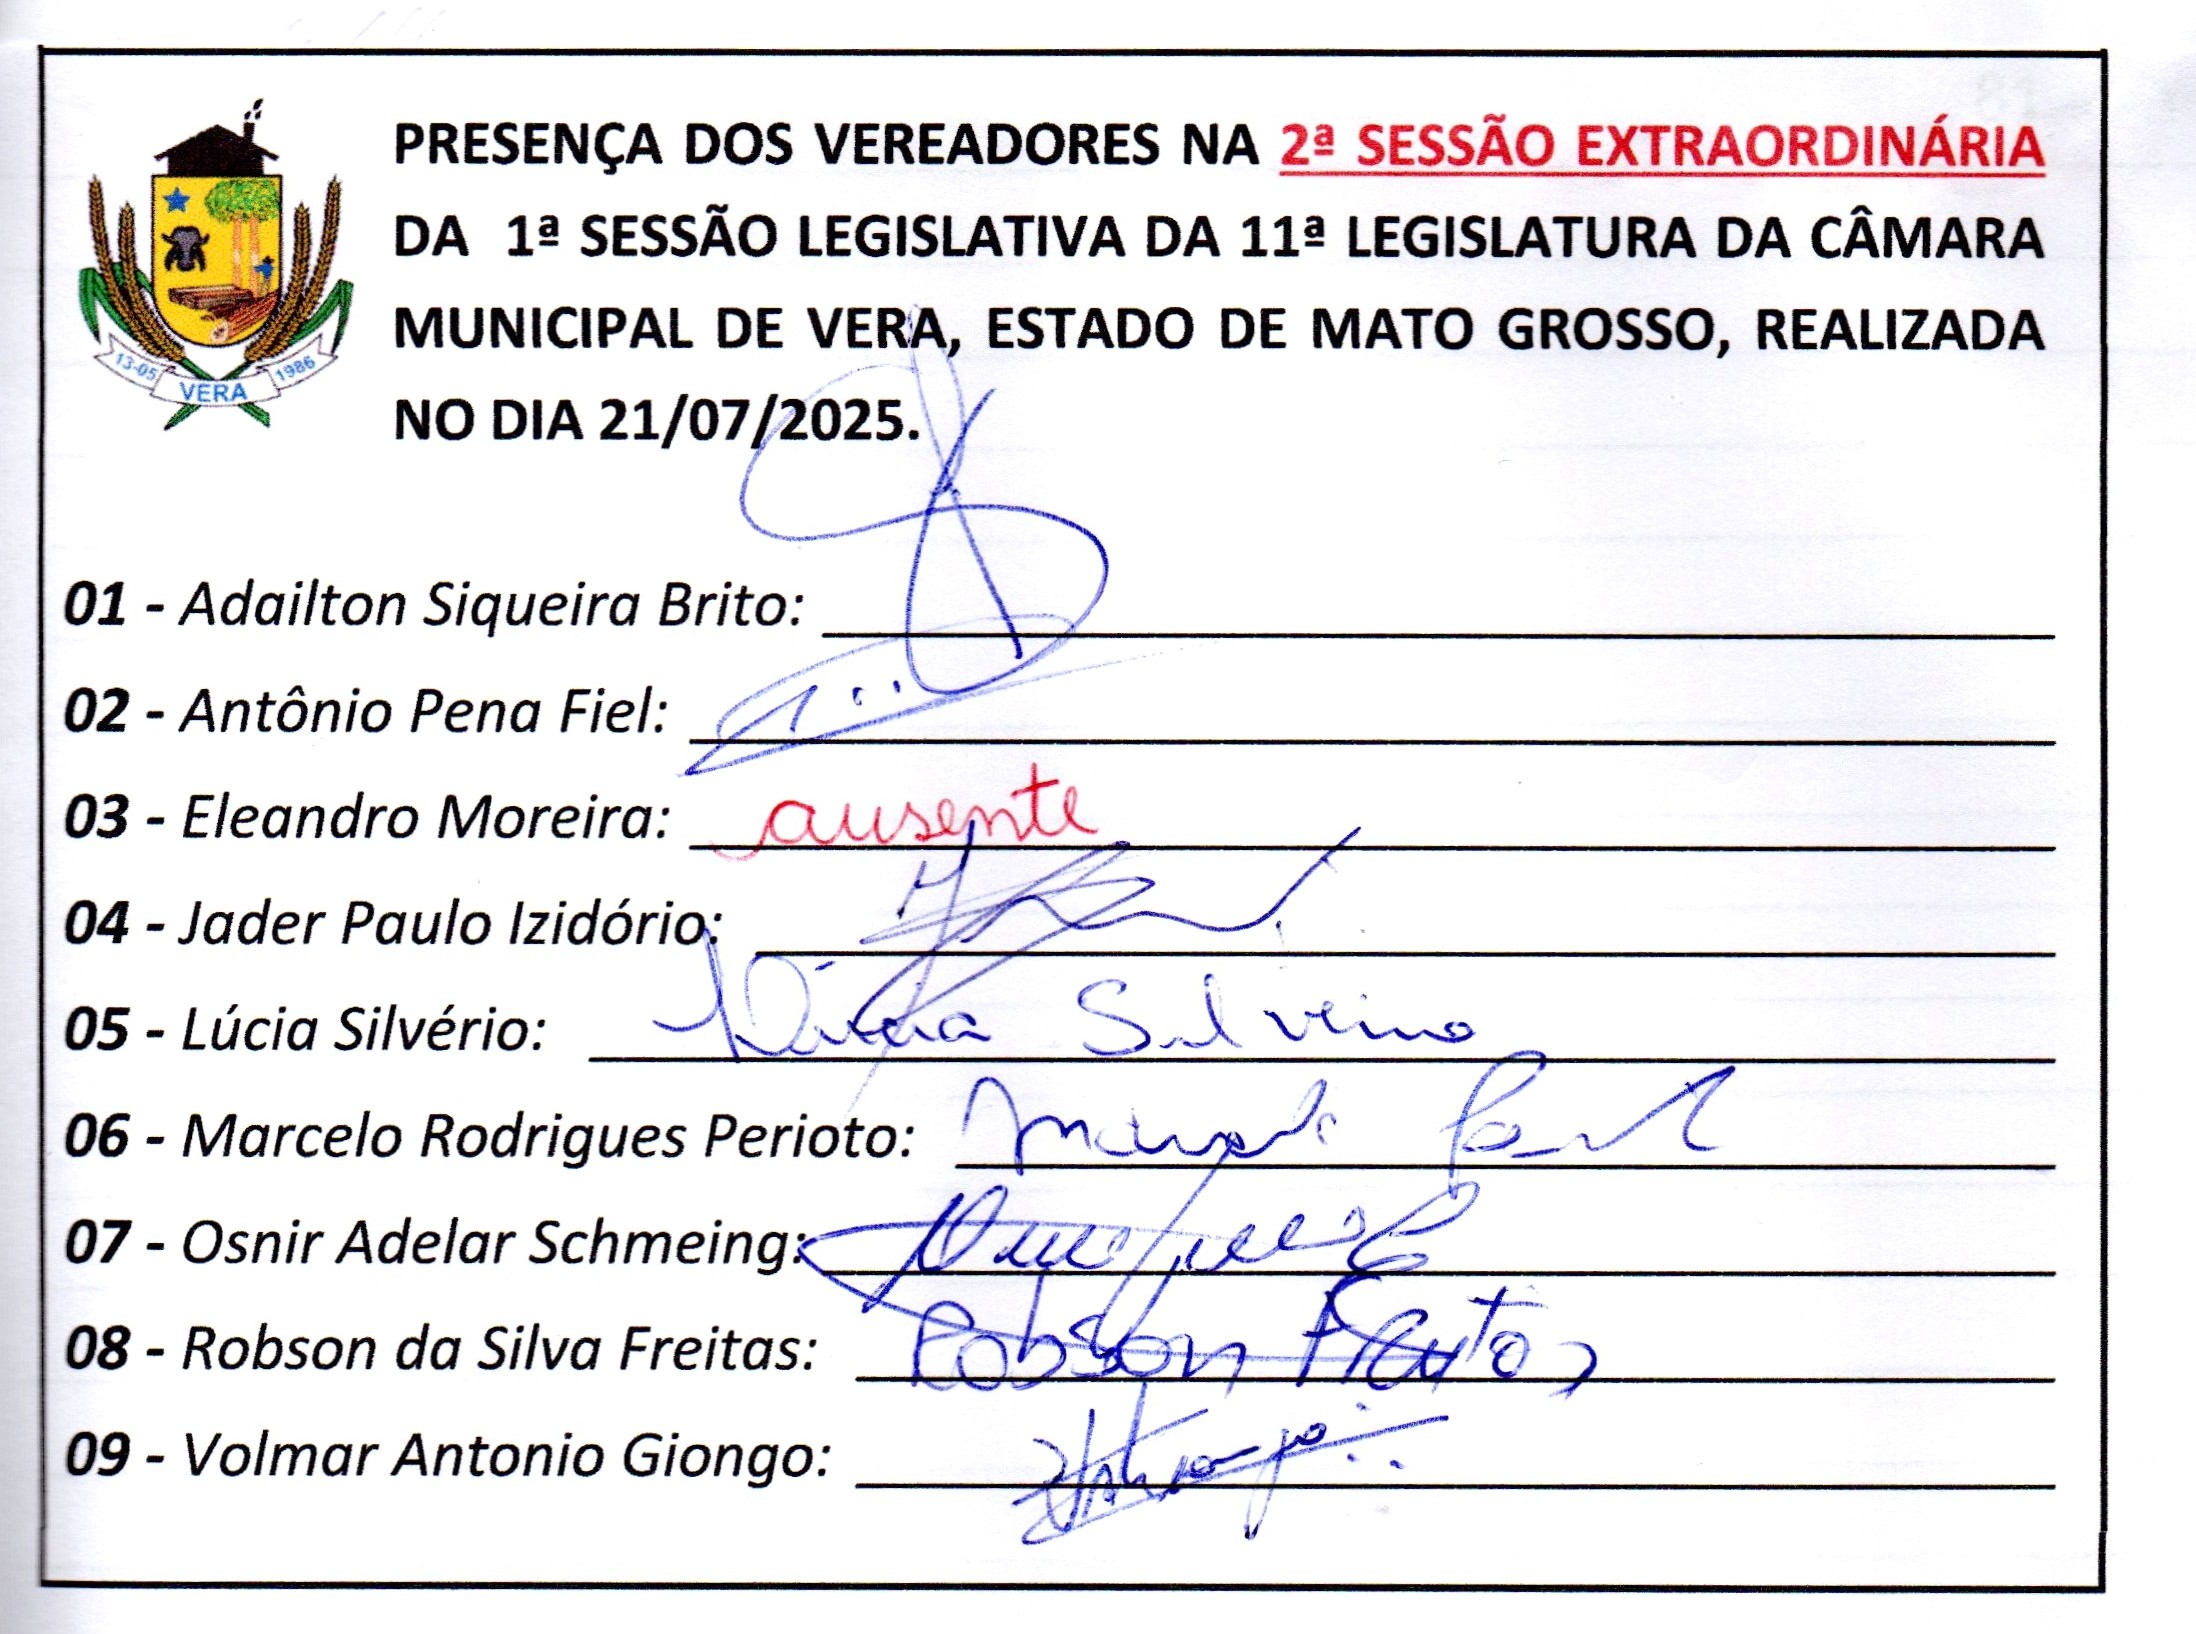 PRESENÇA DOS VEREADORES NA 2ª SESSÃO EXTRAORDINÁRIA
DA 1ª SESSÃO LEGISLATIVA DA 11ª LEGISLATURA DA CÂMARA
MUNICIPAL DE VERA, ESTADO DE MATO GROSSO, REALIZADA
NO DIA 21/07/2025.
13-05 VERA 1986
01 - Adailton Siqueira Brito:
02 - Antônio Pena Fiel:
03 - Eleandro Moreira: ausente
04 - Jader Paulo Izidório:
05 - Lúcia Silvério: Lúcia Silverio
06 - Marcelo Rodrigues Perioto: Marcelo
07 - Osnir Adelar Schmeing:
08 - Robson da Silva Freitas: Robson Freitas
09 - Volmar Antonio Giongo: